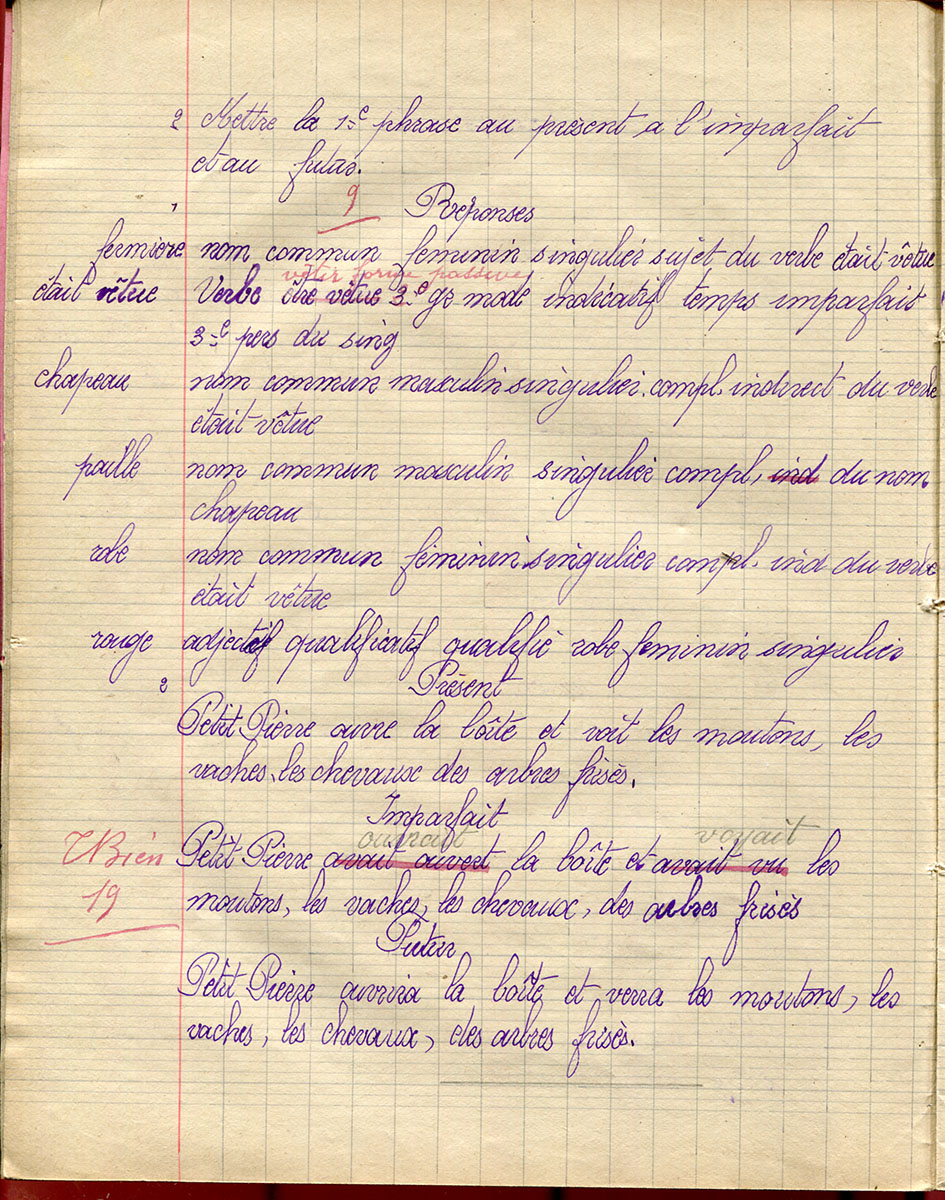 2 Mettre la 1re phrase au présent a l'imparfait
et au futur.
9
1
Réponses
fermière nom commun feminin singulier sujet du verbe était vêtue
vêtir forme passive
était vêtue Verbe être vêtue 3e gr mode indicatif temps imparfait
3e pers du sing
chapeau nom commun masculin singulier compl. indirect du verbe
était vêtue
paille nom commun masculin singulier compl. ind du nom
chapeau
robe nom commun féminin singulier compl. ind du verbe
était vêtue
rouge adjectif qualificatif qualifie robe feminin singulier
2
Présent
Petit Pierre ouvre la boîte et voit les moutons, les
vaches, les chevaux des arbres frisés.
Imparfait
ouvrait voyait
TBien Petit Pierre avait ouvert la boîte et avait vu les
19 moutons, les vaches, les chevaux, des arbres frisés
Futur
Petit Pierre ouvrira la boîte et verra les moutons, les
vaches, les chevaux, des arbres frisés.